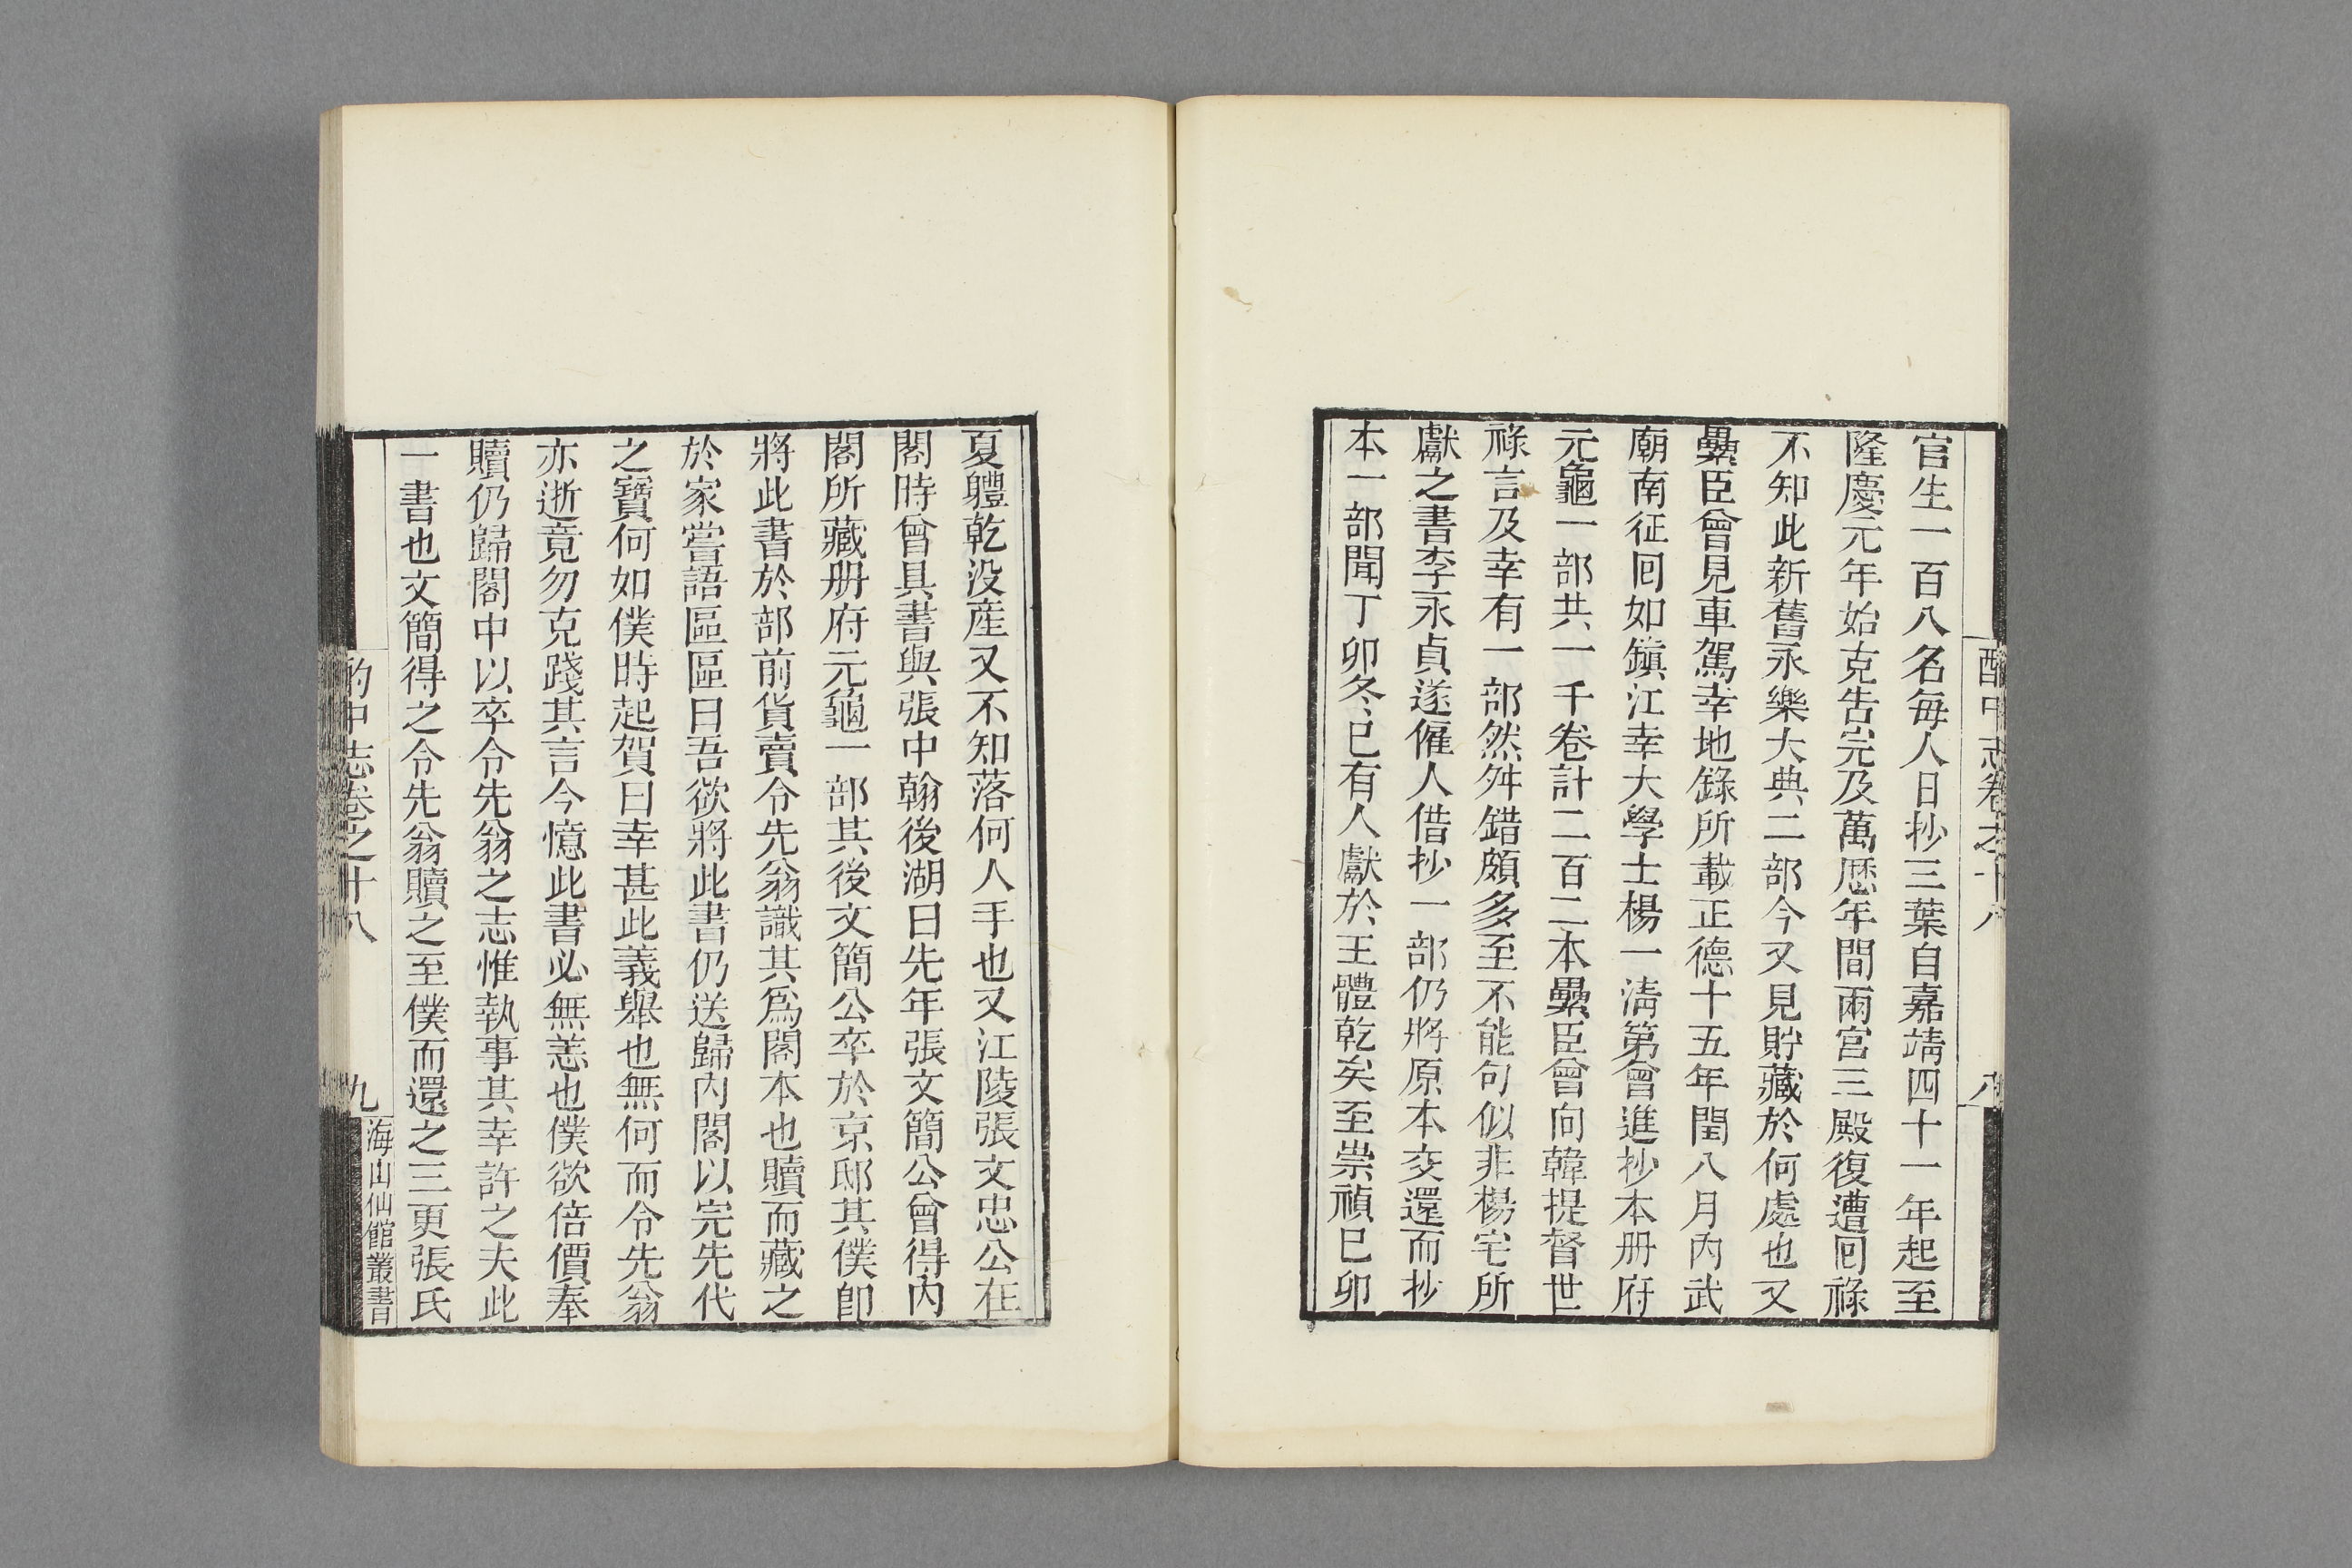 酌中志卷之十八
八
官生一百八名每人日抄三葉自嘉靖四十一年起至
隆慶元年始克告完及萬歷年間兩宮三殿復遭囘祿
不知此新舊永樂大典二部今又見貯藏於何處也又
纍臣曾見車駕幸地錄所載正德十五年閏八月內武
廟南征囘如鎭江幸大學士楊一淸第會進抄本册府
元龜一部共一千卷計二百二本纍臣曾向韓提督世
祿言及幸有一部然舛錯頗多至不能句似非楊宅所
獻之書李永貞遂僱人借抄一部仍將原本交還而抄
本一部聞丁卯冬已有人獻於王體乾矣至崇禎己卯
夏體乾没產又不知落何人手也又江陵張文忠公在
閣時曾具書與張中翰後湖曰先年張文簡公曾得內
閣所藏册府元龜一部其後文簡公卒於京邸其僕卽
將此書於部前貨賣令先翁識其爲閣本也贖而藏之
於家嘗語區區曰吾欲將此書仍送歸內閣以完先代
之寶何如僕時起賀曰幸甚此義舉也無何而令先翁
亦逝竟勿克踐其言今憶此書必無恙也僕欲倍價奉
贖仍歸閣中以卒令先翁之志惟執事其幸許之夫此
一書也文簡得之令先翁贖之至僕而還之三更張氏
酌中志卷之十八
九
海山仙館叢書